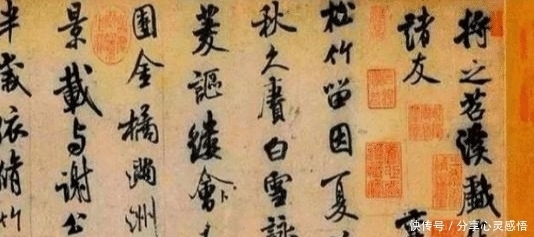 將之苕溪戲
諸友
松竹留因夏
秋久賡白雪詠
菱謳縷會
團金橘滿洲
景載与謝公
半歲依脩竹
快传号 / 分享心灵感悟